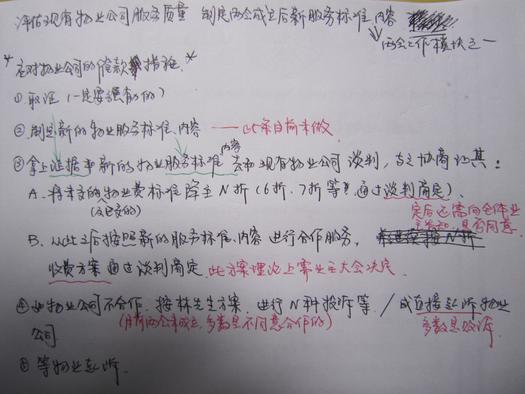 评估现有物业公司服务质量 制定两会成立后新服务标准、内容
两会工作模块之一
*应对物业公司的催款措施.*
①取证(一定要强有力的)
②制定新的物业服务标准、内容 ——此条目前未做
③拿上证据和新的物业服务标准内容去和现有物业公司谈判,与之协商让其:
A.将未交的物业费标准降至N折(6折、7折等)通过谈判商定).
(已交的)
定后还需向全体业主
是否同意.
B.从此之后按照新的服务标准、内容进行合作服务,
收费方案通过谈判商定.此方案理论上需业主大会决定.
④如物业公司不合作.按林先生方案.进行N种投诉等./或直接起诉物业
公司 (目前两会未成立,多数是不同意合作的) 多数是败诉
⑤等物业起诉.